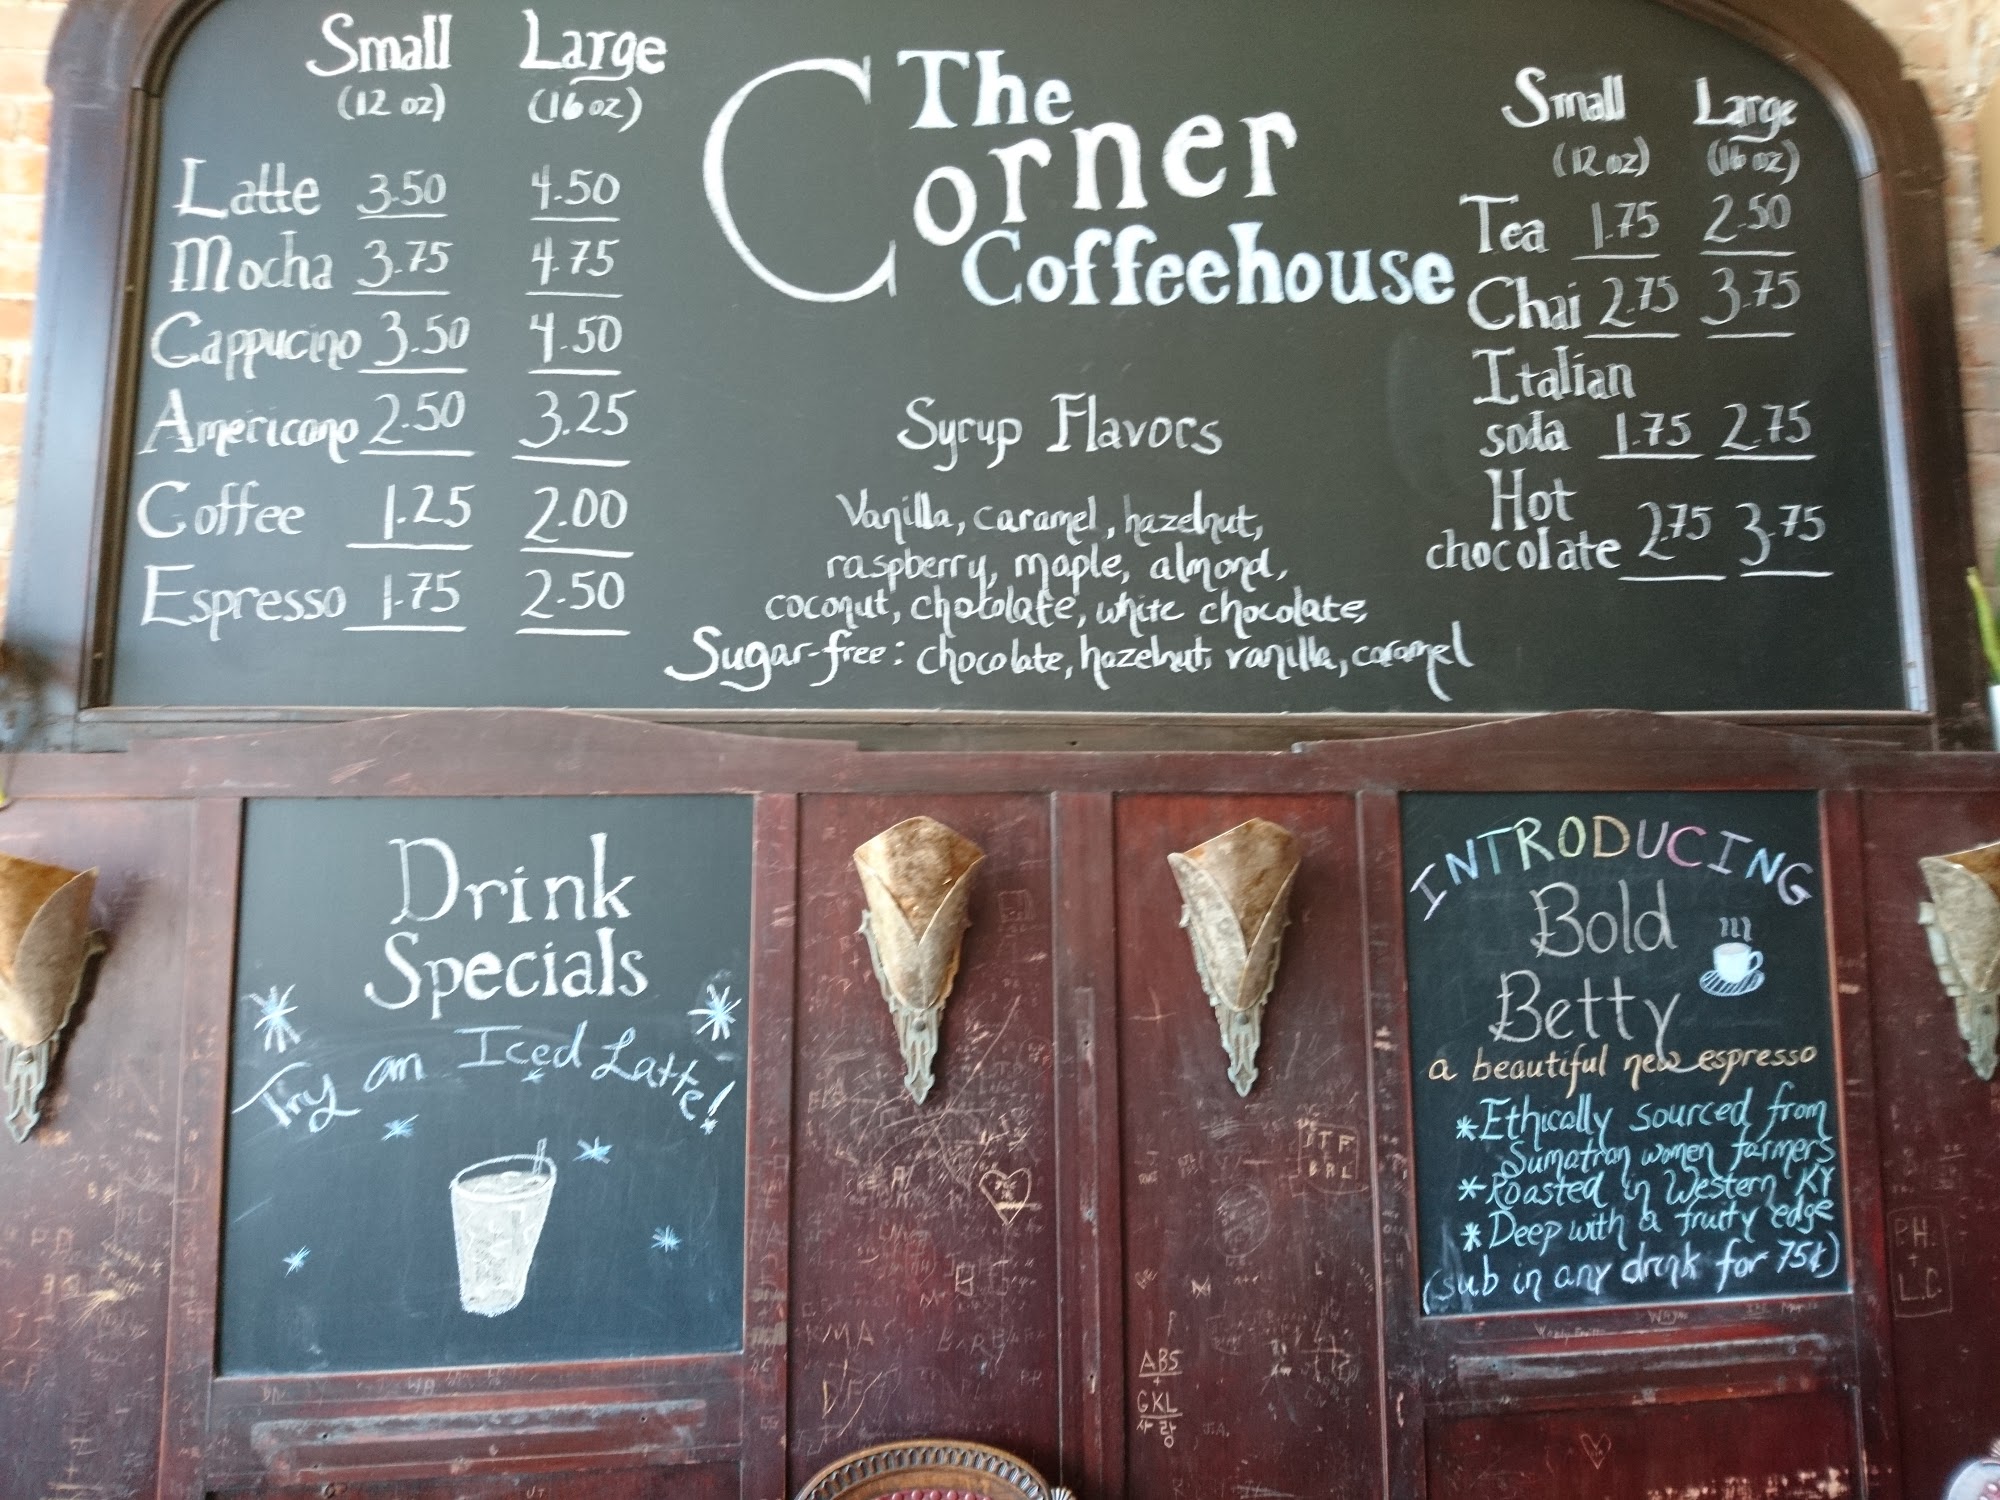 Small Large
(12 oz) (16 oz)
Latte 3.50 4.50
Mocha 3.75 4.75
Cappucino 3.50 4.50
Americano 2.50 3.25
Coffee 1.25 2.00
Espresso 1.75 2.50
The
Corner
Coffeehouse
Syrup Flavors
Vanilla, caramel, hazelnut,
raspberry, maple, almond,
coconut, chocolate, white chocolate,
Sugar-free: chocolate, hazelnut, vanilla, caramel
Small Large
(12 oz) (16 oz)
Tea 1.75 2.50
Chai 2.75 3.75
Italian
soda 1.75 2.75
Hot
chocolate 2.75 3.75
Drink
Specials
Try an Iced Latte!
INTRODUCING
Bold
Betty
a beautiful new espresso
*Ethically sourced from
Sumatran women farmers
*Roasted in Western KY
*Deep with a fruity edge
(sub in any drink for 75¢)
ABS
+
GKL
사랑
P.H.
+
L.C.